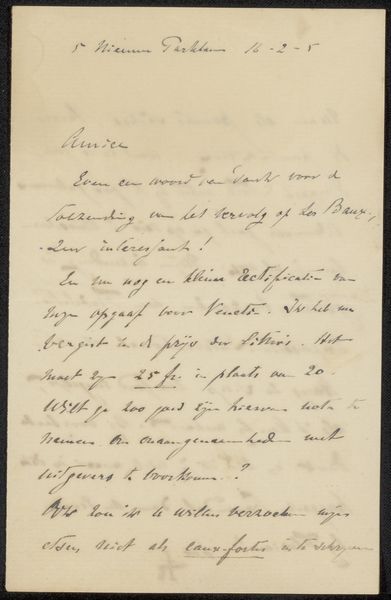 5 Nieuwe Parklaan 16-2-5
Amice
Even een woord van dank voor de
toezending van het vervolg op Les Baux,
Zeer interessant!
En nu nog een kleine rectificatie van
mijn opgaaf voor Venetië. Ik heb me
vergist in de prijs der litho's. Het
moet zijn 25 fr. in plaats van 20.
Wilt ge zoo goed zijn hiervan nota te
nemen om onaangenaamheden met
uitgevers te voorkomen?
Ook zou ik u willen verzoeken mijn
etsen niet als eaux-fortes in te schrijven